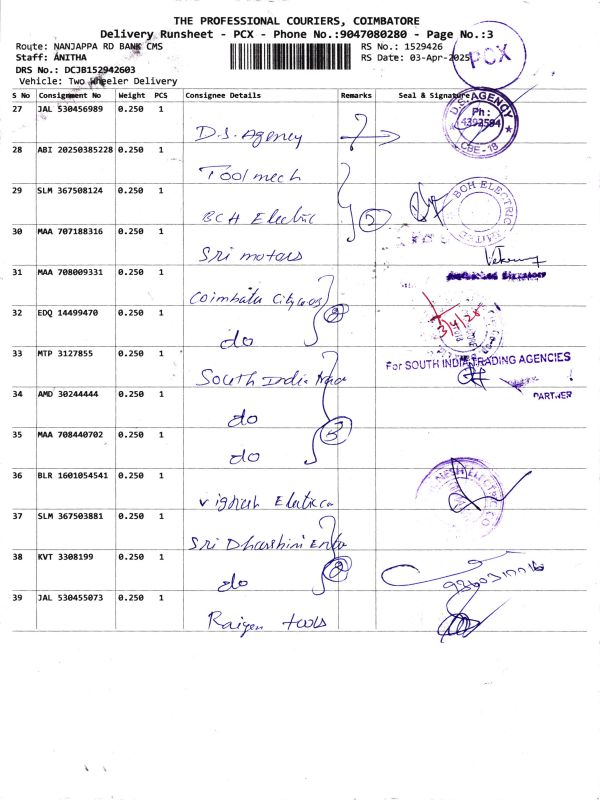 THE PROFESSIONAL COURIERS, COIMBATORE
Delivery Runsheet - PCX - Phone No.:9047080280 - Page No.:3
Route: NANJAPPA RD BANK CMS
RS No.: 1529426
Staff: ANITHA
RS Date: 03-Apr-2025
PCX
DRS No.: DCJB152942603
Vehicle: Two Wheeler Delivery
S No Consignment No Weight PCS Consignee Details Remarks Seal & Signature
27 JAL 530456989 0.250 1 D.S. Agency
D.S. AGENCY
Ph:
4392594
CBE - 18
28 ABI 20250385228 0.250 1 Toolmech
29 SLM 367508124 0.250 1 BCH Electric
2
BCH ELECTRIC LIMITED
30 MAA 707188316 0.250 1 Sri motors
Authorised Signatory
31 MAA 708009331 0.250 1 Coimbatu City
32 EDQ 14499470 0.250 1 do
2
3/4/25
33 MTP 3127855 0.250 1 South India
For SOUTH INDIA TRADING AGENCIES
PARTNER
34 AMD 30244444 0.250 1 do
3
35 MAA 708440702 0.250 1 do
36 BLR 1601054541 0.250 1 Vignesh Electrica
37 SLM 367503881 0.250 1 Sri Dharshini
38 KVT 3308199 0.250 1 do
2
39 JAL 530455073 0.250 1 tools